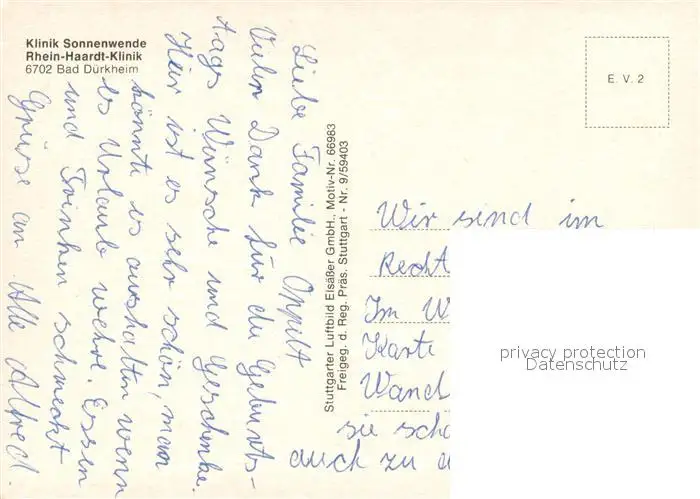 Klinik Sonnenwende
Rhein-Haardt-Klinik
6702 Bad Dürkheim
E. V. 2
Liebe Familie Oppelt
Vielen Dank für die Geburts-
tags Wünsche und Geschenke.
Hier ist es sehr schön, man
könnte es aushalten wenn
es Urlaub wehre. Essen
und Trinken schmeckt
Grüsse an Alle Alfred.
Stuttgarter Luftbild Elsäßer GmbH., Motiv-Nr. 66983
Freigeg. d. Reg. Präs. Stuttgart - Nr. 9/59403
Wir sind im
Recht
Im W
Karte
Wand
sie scho
auch zu
privacy protection
Datenschutz